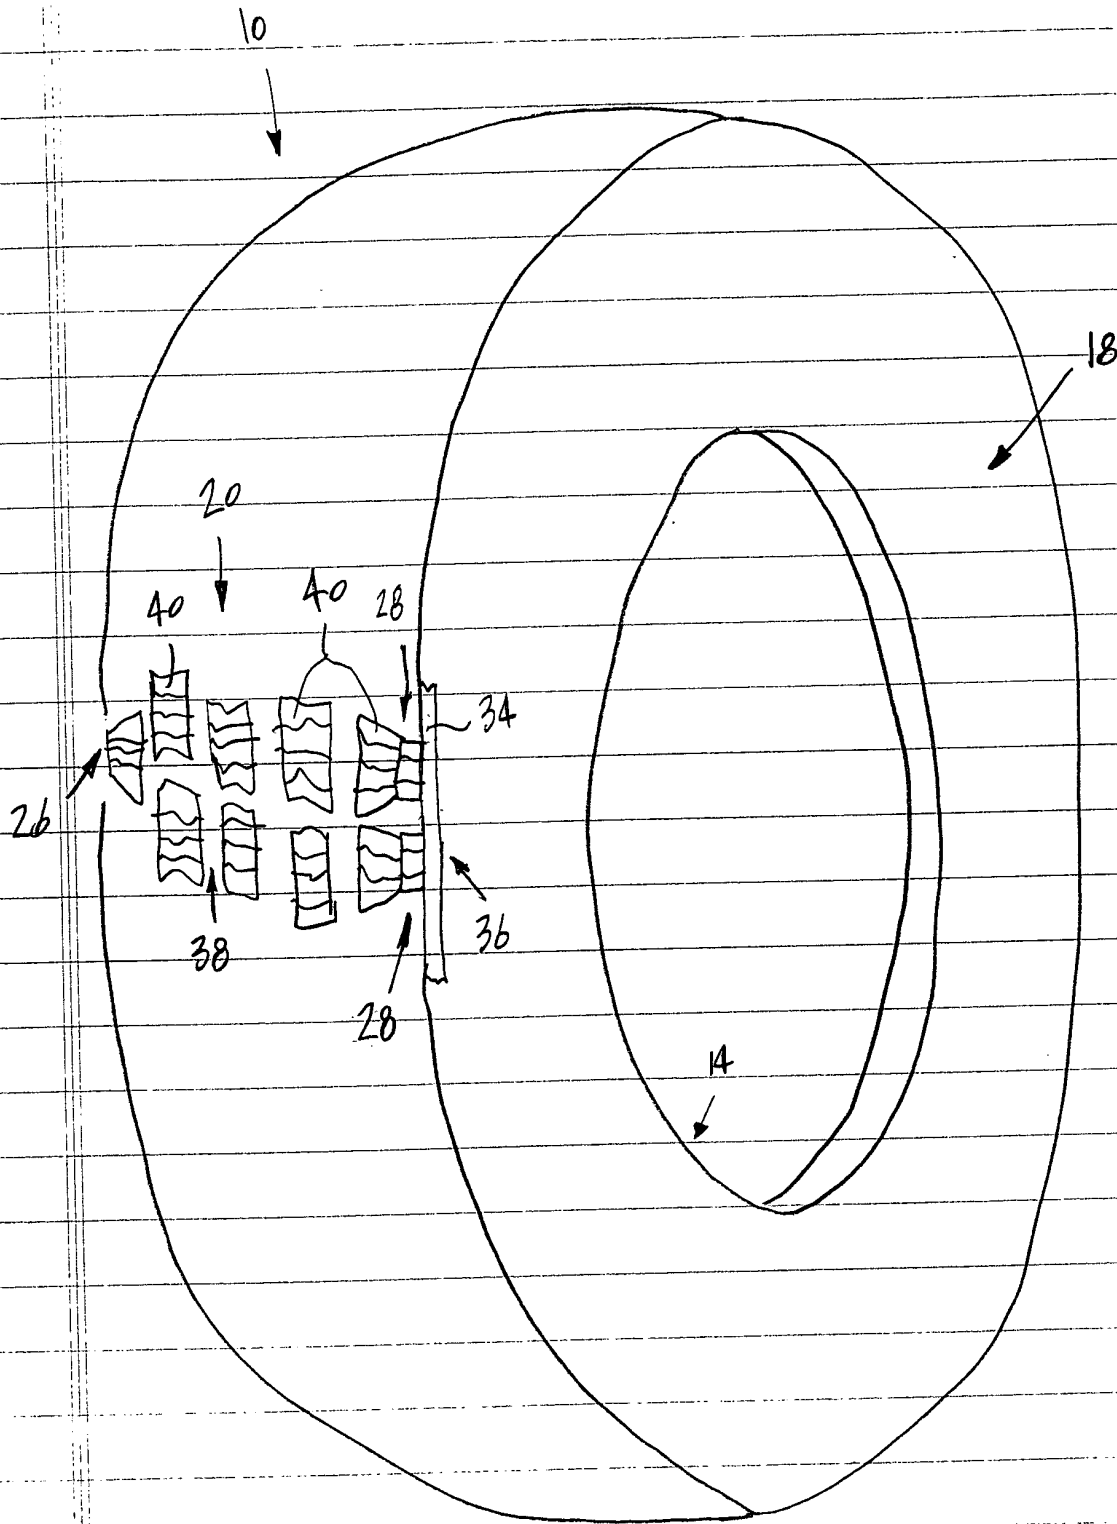 10
18
20
40
40
28
34
26
36
38
28
14